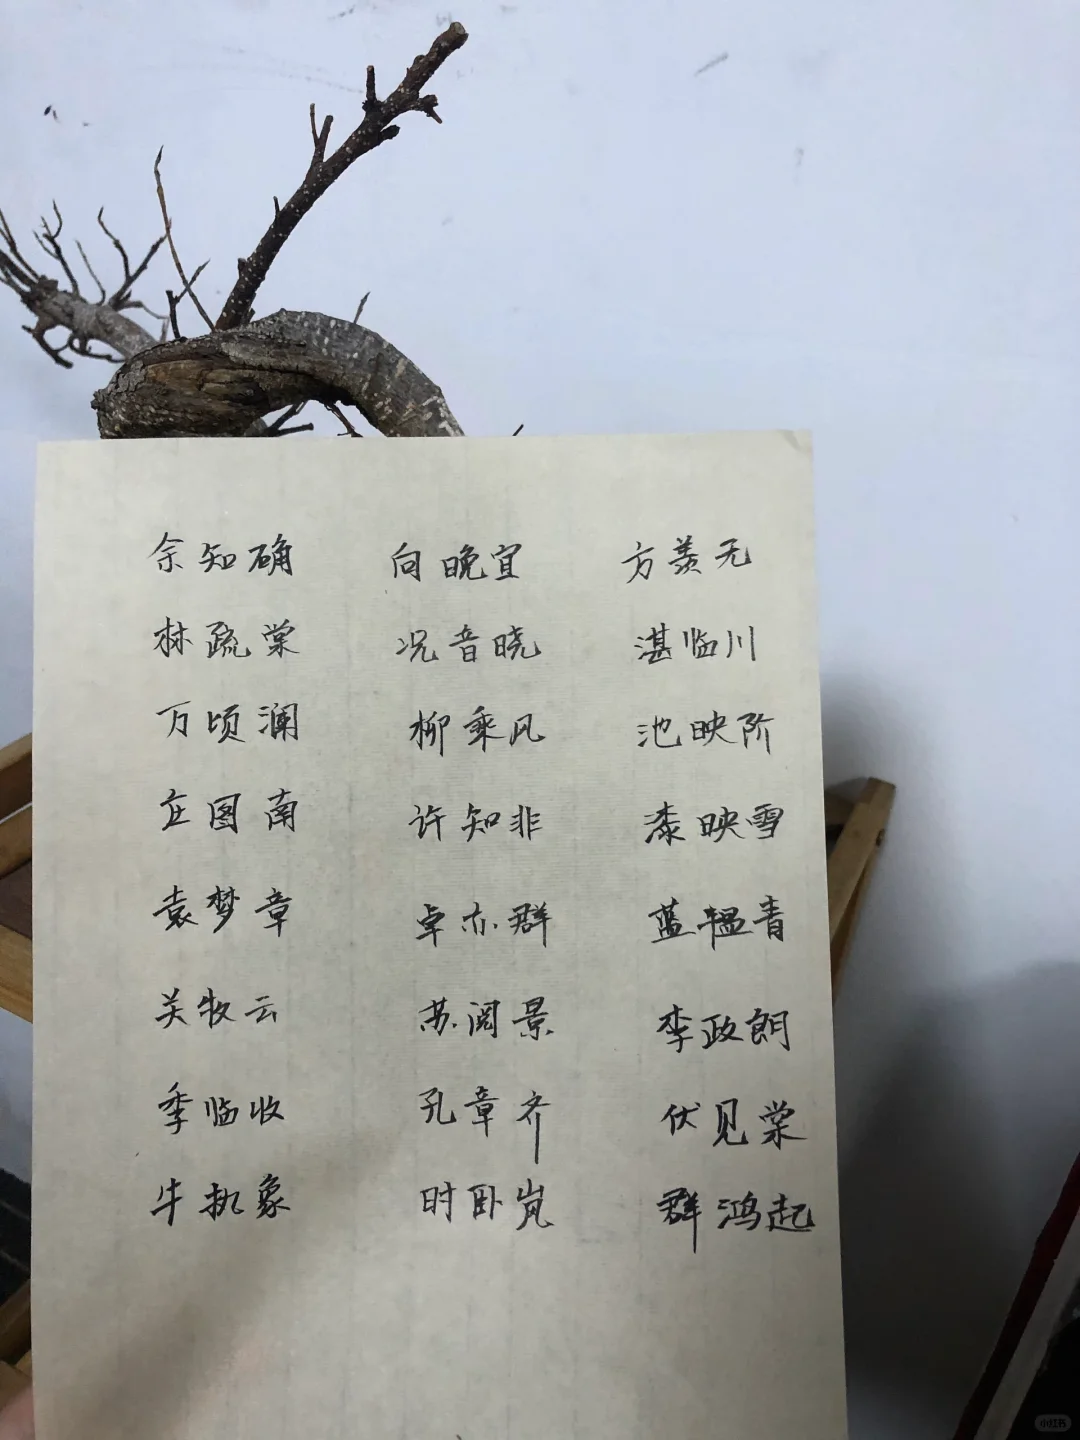 余知确 向晚宜 方羡无
林疏棠 况音晓 湛临川
万顷澜 柳乘风 池映阶
庄图南 许知非 漆映雪
袁梦章 卓亦群 蓝韫青
关牧云 苏阅景 李政朗
季临收 孔章齐 伏见棠
牛执象 时卧岚 群鸿起
小红书